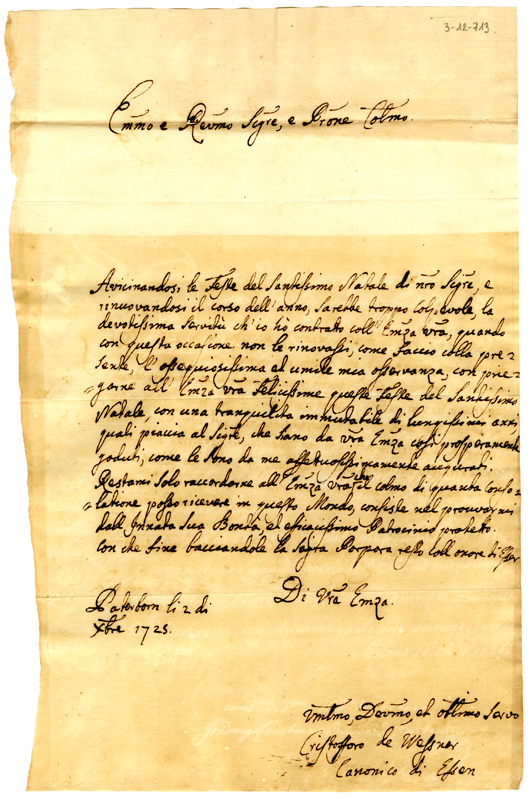 3-12-713
Emmo e Revmo Sigre, e Prone Colmo.
Avicinandosi le Feste del Santissimo Natale di nro Sigre, e
rinuovandosi il corso dell'anno, sarebbe troppo colpevole, la
devotissima Servitù ch'io hò contratto coll'Emza Vra, quando
con questa occasione non le rinovassi, come faccio colla pre=
sente, l'ossequiosissima et umile mia osservanza, con pre=
=garne all'Emza Vra Felicissime queste Feste del Santissimo
Natale, con una tranquilità immutabile di lungissimi anni
quali piaccia al Sigre, che siano da Vra Emza così prosperamente
goduti, come le sono da me affettuosissimamente augurati.
Restami solo raccordarne all'Emza Vra che il colmo di quanta conso=
=latione posso ricevere in questo Mondo, consiste nel prouvarmi
dall'Innata sua Bontà, et efficacissimo Patrocinio protetto.
con che fine bacciandole la Sagra Porpora resto coll'onore di Esser
Di Vra Emza.
Paterborn li 2 di
Xbre 1725.
Vmilmo, Devmo, et obblmo Servo
Cristofforo de Wessner
Canonico di Essen